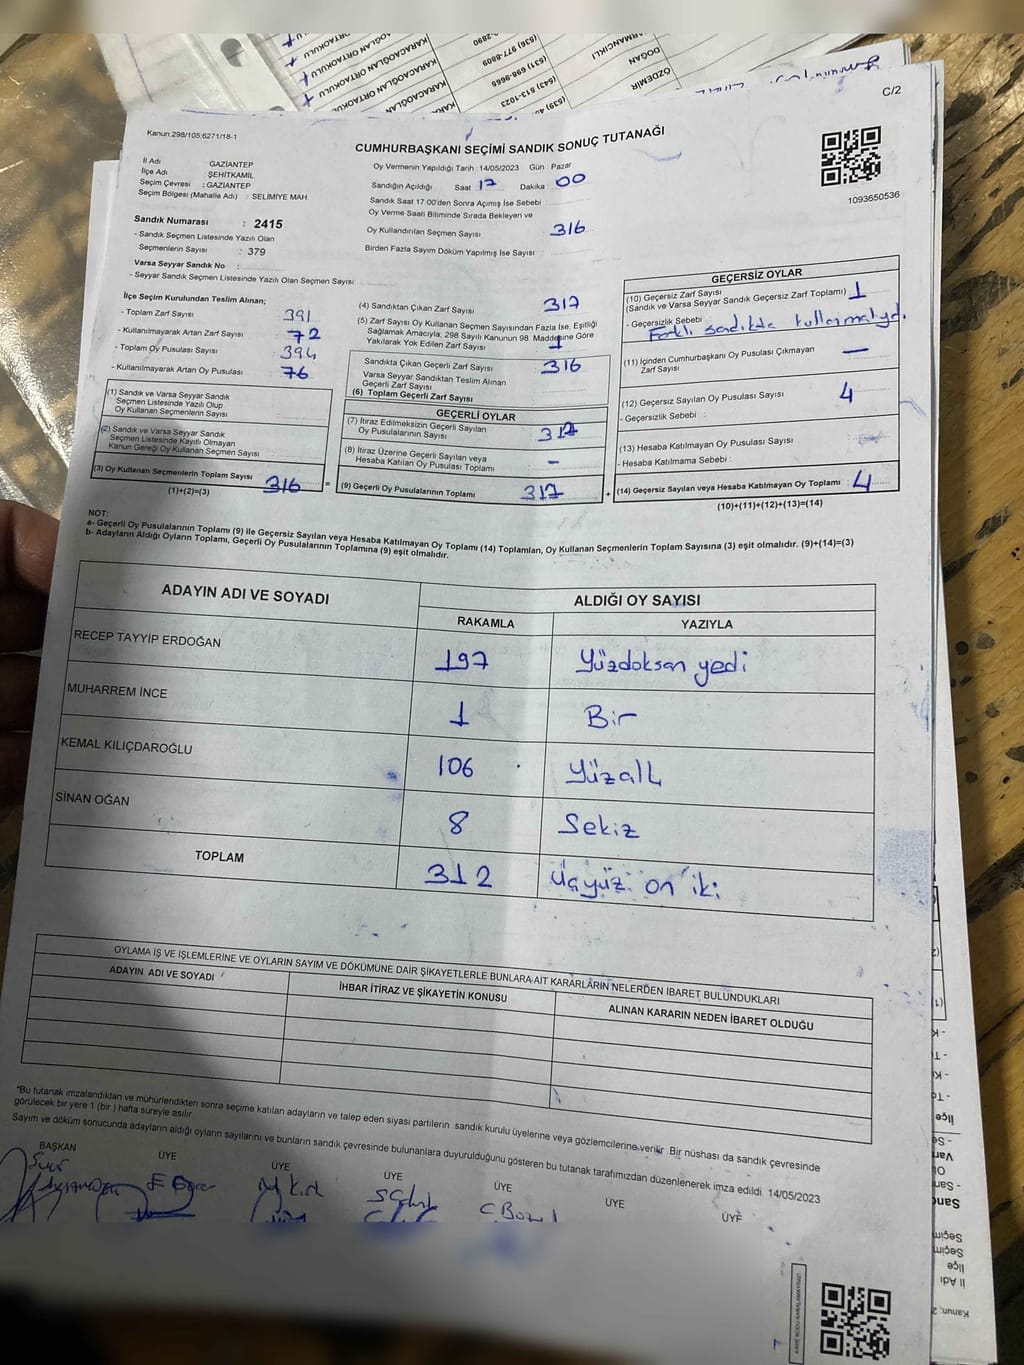 C/2
Kanun:298/105,6271/18-1
CUMHURBAŞKANI SEÇİMİ SANDIK SONUÇ TUTANAĞI
1093650536
İl Adı GAZİANTEP
İlçe Adı ŞEHİTKAMİL
Seçim Çevresi : GAZİANTEP
Seçim Bölgesi (Mahalle Adı) : SELİMİYE MAH
Sandık Numarası : 2415
- Sandık Seçmen Listesinde Yazılı Olan
Seçmenlerin Sayısı : 379
Varsa Seyyar Sandık No :
- Seyyar Sandık Seçmen Listesinde Yazılı Olan Seçmen Sayısı:
Oy Vermenin Yapıldığı Tarih : 14/05/2023 Gün : Pazar
Sandığın Açıldığı Saat 17 Dakika 00
Sandık Saat 17:00'den Sonra Açımış İse Sebebi
Oy Verme Saati Bitiminde Sırada Bekleyen ve
Oy Kullandırılan Seçmen Sayısı 316
Birden Fazla Sayım Döküm Yapılmış İse Sayısı
İlçe Seçim Kurulundan Teslim Alınan;
- Toplam Zarf Sayısı 391
- Kullanılmayarak Artan Zarf Sayısı 72
- Toplam Oy Pusulası Sayısı 394
- Kullanılmayarak Artan Oy Pusulası 76
(1) Sandık ve Varsa Seyyar Sandık
Seçmen Listesinde Yazılı Olup
Oy Kullanan Seçmenlerin Sayısı
(2) Sandık ve Varsa Seyyar Sandık
Seçmen Listesinde Kayıtlı Olmayan
Kanun Gereği Oy Kullanan Seçmen Sayısı
(3) Oy Kullanan Seçmenlerin Toplam Sayısı 316
(1)+(2)=(3)
(4) Sandıktan Çıkan Zarf Sayısı 317
(5) Zarf Sayısı Oy Kullanan Seçmen Sayısından Fazla İse, Eşitliği
Sağlamak Amacıyla, 298 Sayılı Kanunun 98. Maddesine Göre
Yakılarak Yok Edilen Zarf Sayısı 1
Sandıkta Çıkan Geçerli Zarf Sayısı 316
Varsa Seyyar Sandıktan Teslim Alınan
Geçerli Zarf Sayısı
(6) Toplam Geçerli Zarf Sayısı
GEÇERLİ OYLAR
(7) İtiraz Edilmeksizin Geçerli Sayılan
Oy Pusulalarının Sayısı
(8) İtiraz Üzerine Geçerli Sayılan veya
Hesaba Katılan Oy Pusulası Toplamı -
(9) Geçerli Oy Pusulalarının Toplamı
GEÇERSİZ OYLAR
(10) Geçersiz Zarf Sayısı 1
(Sandık ve Varsa Seyyar Sandık Geçersiz Zarf Toplamı)
- Geçersizlik Sebebi :
(11) İçinden Cumhurbaşkanı Oy Pusulası Çıkmayan —
Zarf Sayısı
(12) Geçersiz Sayılan Oy Pusulası Sayısı 4
- Geçersizlik Sebebi :
(13) Hesaba Katılmayan Oy Pusulası Sayısı
- Hesaba Katılmama Sebebi :
(14) Geçersiz Sayılan veya Hesaba Katılmayan Oy Toplamı 4
(10)+(11)+(12)+(13)=(14)
NOT:
a- Geçerli Oy Pusulalarının Toplamı (9) ile Geçersiz Sayılan veya Hesaba Katılmayan Oy Toplamı (14) Toplamları, Oy Kullanan Seçmenlerin Toplam Sayısına (3) eşit olmalıdır. (9)+(14)=(3)
b- Adayların Aldığı Oyların Toplamı, Geçerli Oy Pusulalarının Toplamına (9) eşit olmalıdır.
ADAYIN ADI VE SOYADI ALDIĞI OY SAYISI
RAKAMLA YAZIYLA
RECEP TAYYİP ERDOĞAN 197 Yüzdoksan yedi
MUHARREM İNCE 1 Bir
KEMAL KILIÇDAROĞLU 106 Yüzaltı
SİNAN OĞAN 8 Sekiz
TOPLAM 312 Üçyüz on iki
OYLAMA İŞ VE İŞLEMLERİNE VE OYLARIN SAYIM VE DÖKÜMÜNE DAİR ŞİKAYETLERLE BUNLARA AİT KARARLARIN NELERDEN İBARET BULUNDUKLARI
ADAYIN ADI VE SOYADI İHBAR İTİRAZ VE ŞİKAYETİN KONUSU ALINAN KARARIN NEDEN İBARET OLDUĞU
*Bu tutanak imzalandıktan ve mühürlendikten sonra seçime katılan adayların ve talep eden siyasi partilerin sandık kurulu üyelerine veya gözlemcilerine verilir. Bir nüshası da sandık çevresinde
görülecek bir yere 1 (bir) hafta süreyle asılır.
Sayım ve döküm sonucunda adayların aldığı oyların sayılarını ve bunların sandık çevresinde bulunanlara duyurulduğunu gösteren bu tutanak tarafımızdan düzenlenerek imza edildi. 14/05/2023
BAŞKAN ÜYE ÜYE ÜYE ÜYE ÜYE ÜYE